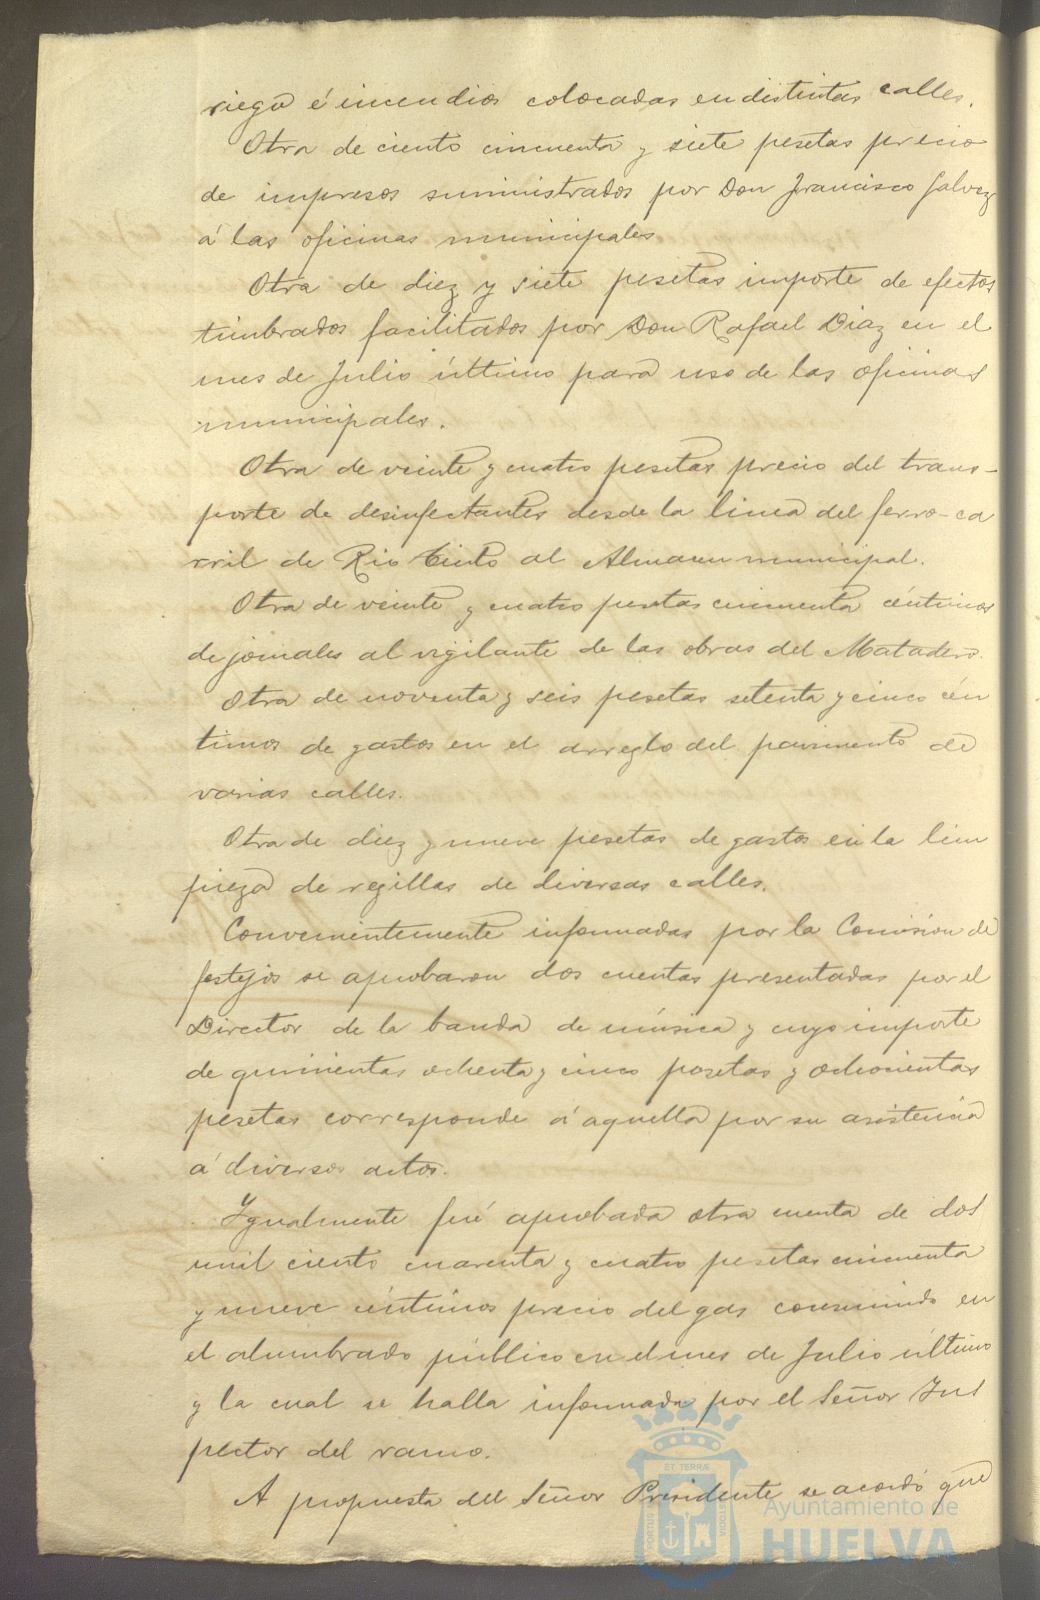 riego é incendios colocadas en distintas calles.
Otra de ciento cincuenta y siete pesetas precio
de impresos suministrados por Don Francisco Galvez
á las oficinas municipales
Otra de diez y siete pesetas importe de efectos
timbrados facilitados por Don Rafael Diaz en el
mes de Julio último para uso de las oficinas
municipales.
Otra de veinte y cuatro pesetas precio del trans-
porte de desinfectantes desde la linea del ferro-ca
rril de Rio Tinto al Almacen municipal.
Otra de veinte y cuatro pesetas cincuenta céntimos
de jornales al vigilante de las obras del Matadero.
Otra de noventa y seis pesetas setenta y cinco cén
timos de gastos en el arreglo del pavimento de
varias calles.
Otra de diez y nueve pesetas de gastos en la lim
pieza de regillas de diversas calles.
Convenientemente informadas por la Comisión de
festejos se aprobaron dos cuentas presentadas por el
Director de la banda de música y cuyo importe
de quinientas ochenta y cinco pesetas y ochocientas
pesetas corresponde á aquella por su asistencia
á diversos actos.
Ygualmente fué aprobada otra cuenta de dos
mil ciento cuarenta y cuatro pesetas cincuenta
y nueve céntimos precio del gas consumido en
el alumbrado público en el mes de Julio último
y la cual se halla informada por el Señor Ins
pector del ramo.
A propuesta del Señor Presidente se acordó que
ET TERRÆ
PORTUS
CUSTODIA
Ayuntamiento de
HUELVA